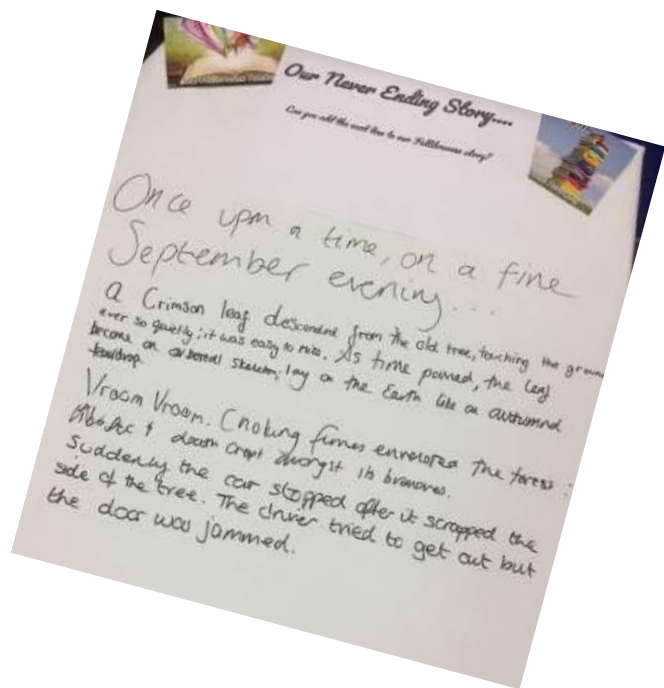 Our Never Ending Story....
Can you add the next line to our story?
Once upon a time, on a fine
September evening...
a Crimson leaf descended from the old tree, touching the
ever so quietly; it was easy to miss. As time passed, the leaf
become an arboreal skeleton; lay on the Earth like an autumnal
teardrop
Vroom Vroom. Choking fumes enveloped the forest:
& death crept amongst its branches.
Suddenly the car stopped after it scrapped the
side of the tree. The driver tried to get out but
the door was jammed.